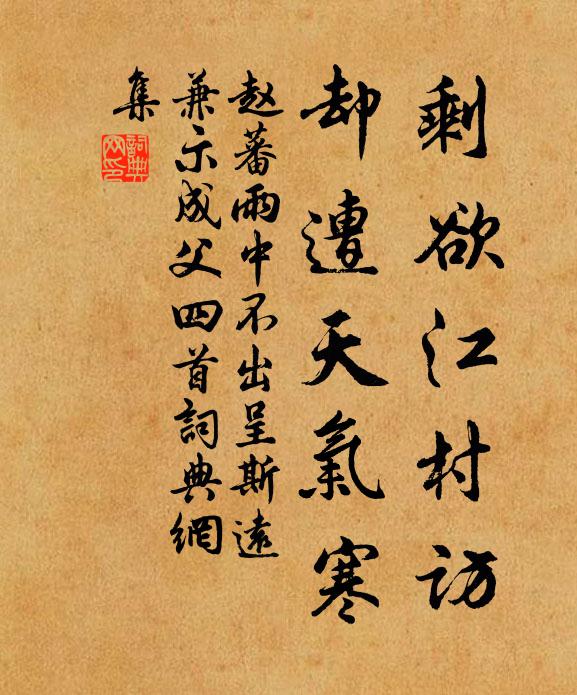 剩欲江村訪
却遭天氣寒
赵蕃雨中不出呈斯遠
兼示成父四首詞典網
集
詞典